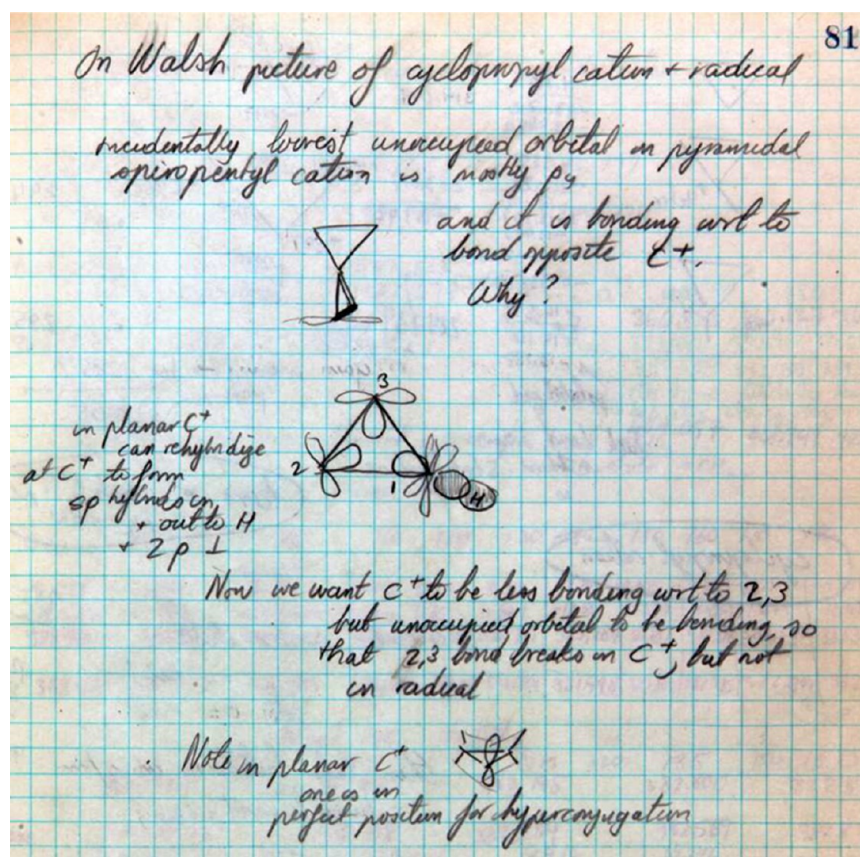 81
In Walsh picture of cyclopropyl cation + radical
incidentally lowest unoccupied orbital in pyramidal
spiropentyl cation is mostly py
and it is bonding wrt to
bond opposite C+.
Why?
3
in planar C+
can rehybridize
at C+ to form
sp hybrids in
+ out to H
+ 2 p ⊥
2
1
H
Now we want C+ to be less bonding wrt to 2,3
but unoccupied orbital to be bonding, so
that 2,3 bond breaks in C+, but not
in radical
Note in planar C+
one is in
perfect position for hyperconjugation